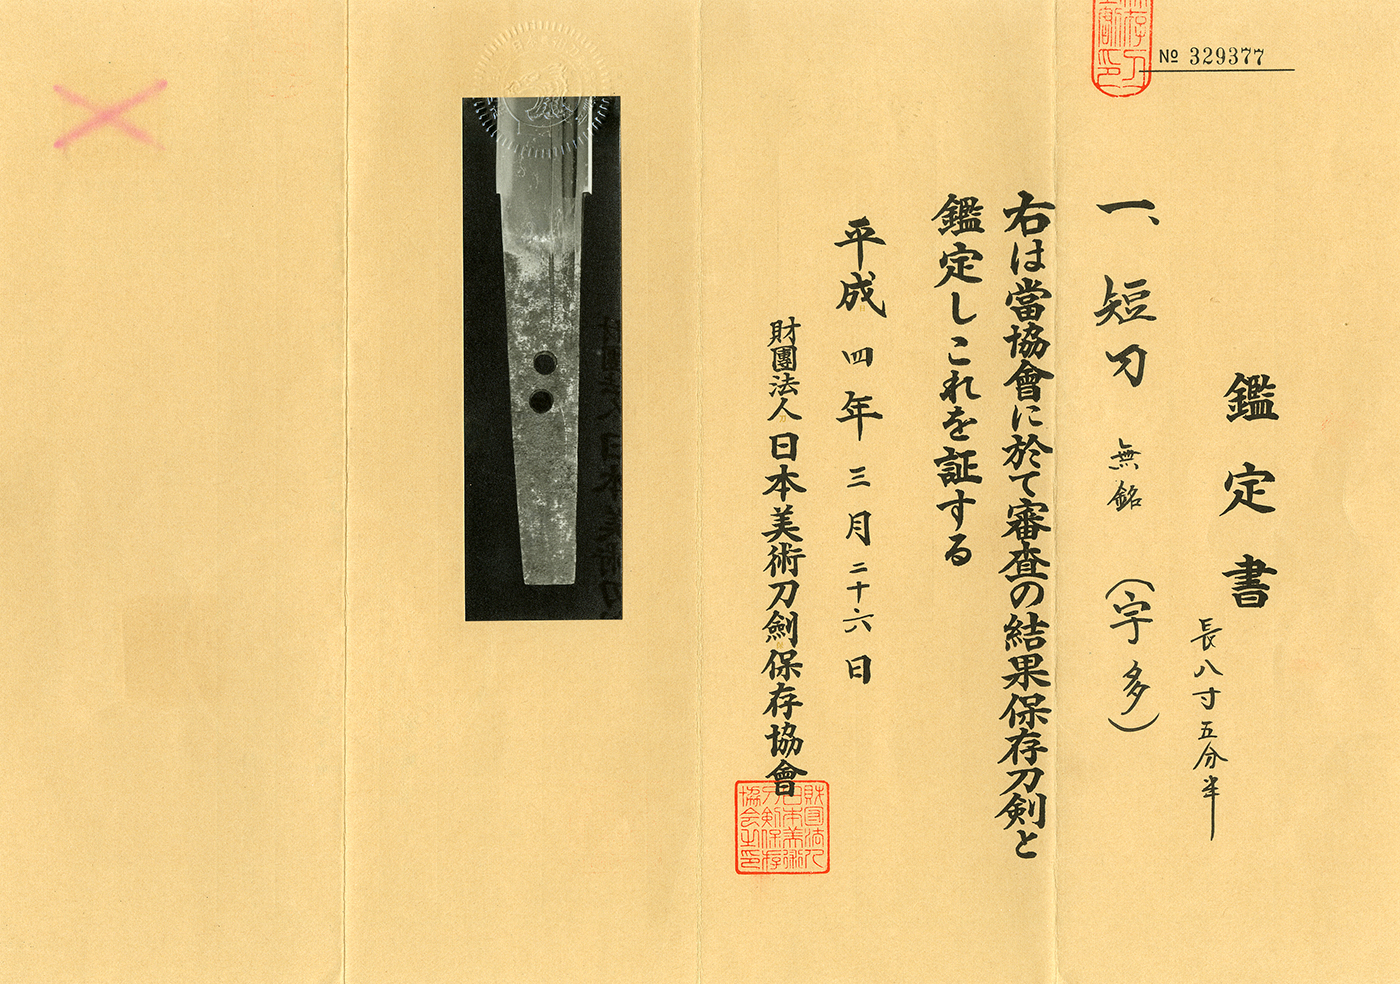 № 329377
鑑定書
長八寸五分半
一、短刀 無銘 (宇多)
右は當協會に於て審査の結果保存刀剣と
鑑定しこれを証する
平成四年三月二十六日
財團法人日本美術刀劍保存協會
財団法人
日本美術
刀剣保存
協会之印